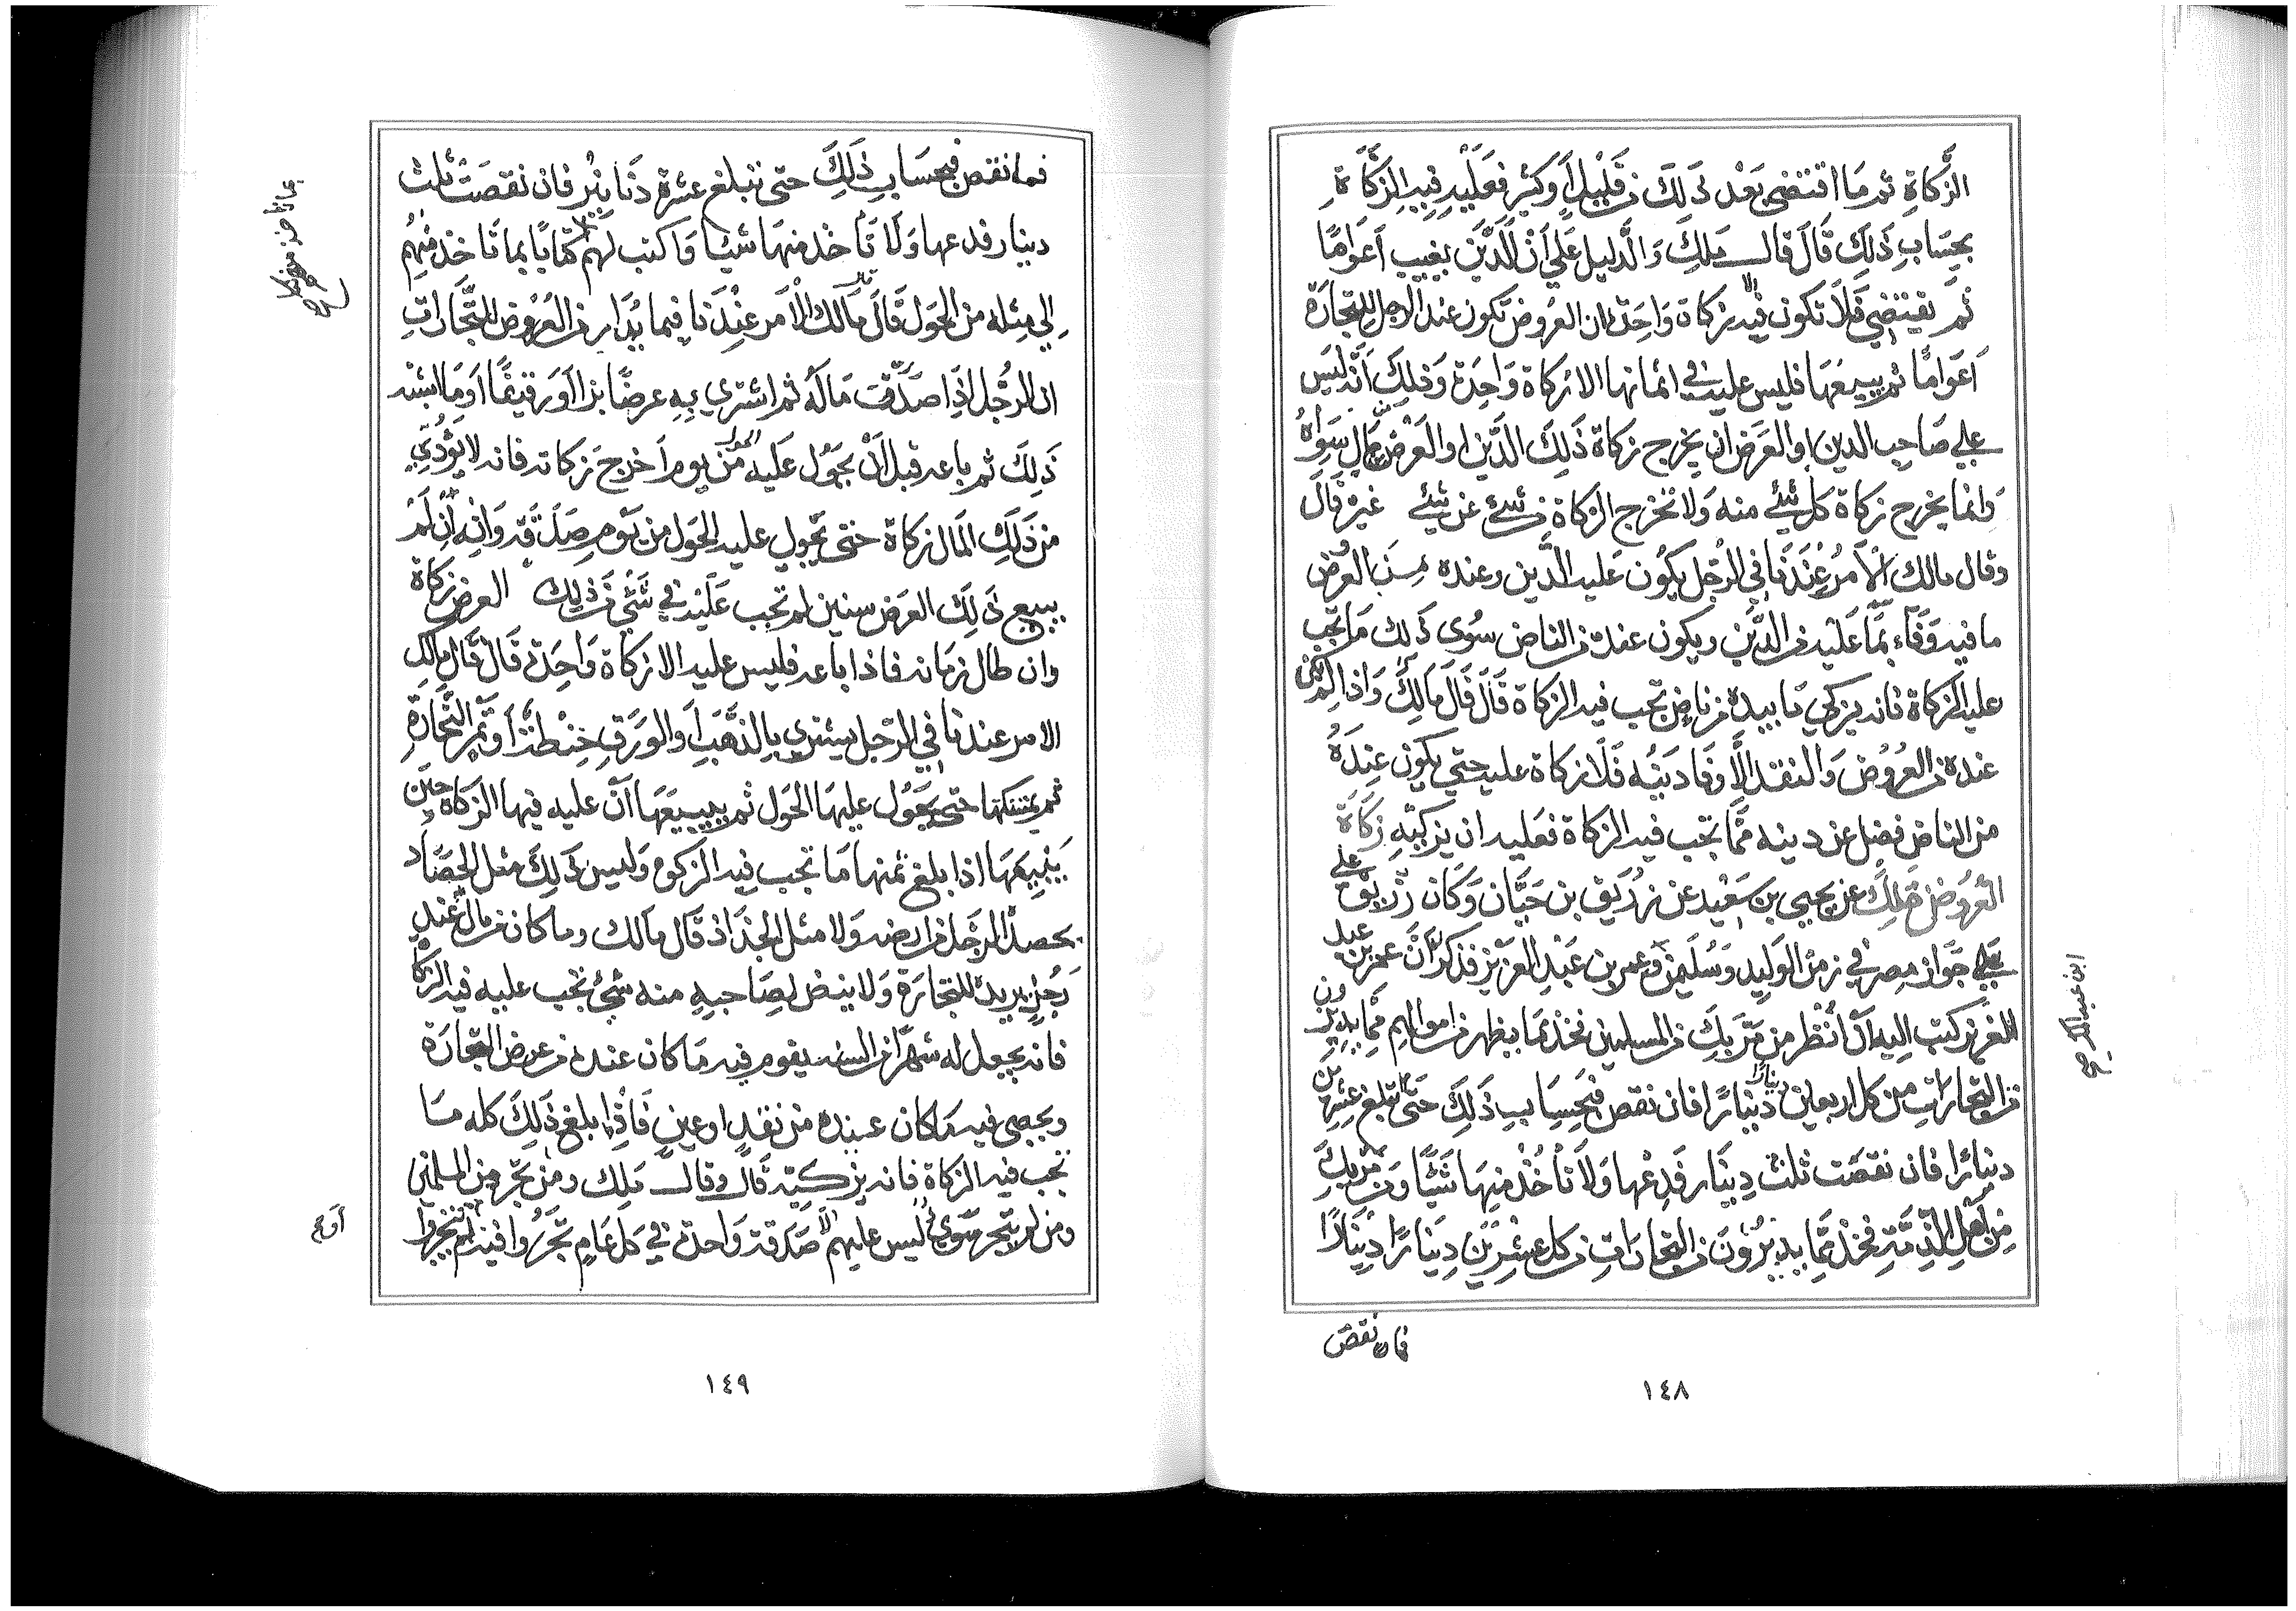 الزَّكَاةِ ثم مَا اقتضى بَعْد ذَلِكَ من قَلِيْلٍ أَوْ كَثِيرٍ فَعَلَيهِ فِيهِ الزَّكَاةِ
بحِسَابِ ذَلِكَ قَالَ قالــ مَلِكِ وَالدَّلِيلُ عَلَى أَنْ الدَّيْنَ يغيب أَعوامًا
ثم يقتضي فَلَا تكون فيه الا زكاة وَاحِدَة ان العُروضَ تكون عند الرجل للتجارَة
أَعْوَامًا ثم يبيعهَا فليس عليه في اثمانها الا زكاة وَاحِدَة وَذلِكَ أنه ليس
علي صَاحِب الدين او العَرَض ان يخرج زكاة ذَلِكَ الدَّين او العَرْض من مَالٍ سِوَاهُ
وَانما يخرج زكاة كل شيْء منه وَلا تخرج الزكاة من شيء عن شيْء غيره قَالَ
وقال مالك الأَمرُ عِنْدَنَا في الرَّجُل يكُون عَليه الدَّين وعنده مــن العُروُض
ما فيه وَفَاء بمَّا عَلَيْه من الدَّيْن ويكون عنده من الناض سُوى ذَلك مَا تجب
عليه الزكاة فانه يزكي مَا بيده من ناض تجب فيه الزكاة قَالَ قَالَ مَالِكٌ وَاذا لم يكن
عنده من العُرُوْض وَالنقد إلَّا وفا دينُه فَلَا زكاة عليه حتي يكون عِنْدَهُ
من الناض فضل عن دينه مَّمَا تجب فيه الزكاة فعليه ان يزكيهِ زَكَاةَ
العُرُوض مَالِك عن يحيي بن سَعْيد عن زُرَيق بن حَيَّان وَكان رُزَيق على
علي جَوَاز مصر في زمن الوليد وَسُلَيمن وعمر بن عَبْدِ العزيز فذكر أنَّ عمر بن عبد
العزيز كتب اليه أن أُنْظر من مَرَّ بكَ من المسلمين فخذ مما يظهر من اموالهم مما يديرون
من التجارات من كل اربعين دِيْنارًا دينارًا فان نقص فَبِحِسَابِ ذَلِكَ حَتى تبلغ عِشرين
دينارا فان نقصَت ثلث دِينَار فَدعْها وَلَا تأخُذ مِنهَا شَيْئًا وَمَن مَرَّ بِكَ
مِن أَهْلِ الذِّمَّةِ فخذ مَّمَا يدِيْرُوْنَ من التجارَاتِ من كل عِشْرِيْنَ دِينَارًا دِيْنَارًا
ابن عبد الملك صح
فما نقصَ
١٤٨
فما نقص فَبحِسَاب ذَلِكَ حتى تبلغ عشرة دَنَانِيْر فان نقصَت ثلث
دينار فدعها وَلَا تَأخذ منهَا شيئا وَاكتب لهم كتابًا بما تَأخذ مِنهم
إلي مِثله من الحَول قَالَ مَالك الأَمر عِنْدَنا فيما يُدار من العُرُوْض للتِّجَارَاتِ
ان الرَّجُل إذَا صَدَّقت مَالَهُ ثم اشتري بهِ عرضًا بزا أَو رقيقًا أو مَا اشبه
ذَلِكَ ثم باعه قبل أَنْ يحَوُل عَليه الحول من يوم اَخرجَ زكاته فانه لا يُؤدّي
من ذَلِك المَال زكاة حتى يَحول عليه الحَول من يَوم صدَّقه وَانه إن لَمْ
يبيع ذَلِكَ العَرَض سنين لم تجب عَلَيه في شَيْء من ذلِك العرض زكاة
وان طال زمَانه فاذا باعه فليس عليه الا زكاة وَاحِدَة قَالَ قَالَ مَالِك
الامر عندنا في الرَّجل يشتري بالذَّهَب أَو الورَق حِنْطةً أَو تمر التَّجَارَةِ
ثم يمسكها حتى يَحَوُل عليهَا الحَول ثم يبيعَهَا انّ عليه فيها الزكاة حين
يَبِيعهَا اذا بلغ ثمنها مَا تجب فيه الزكوة وَليس ذَلِكَ مثل الحِصَاد
يحصدُ الرَّجُل من ارضه وَلا مثل الجذَاذ قَالَ مَالك وما كان من مال عند
رَجُلٍ يديره للتجارَة وَلا ينض لصَاحبهِ منه شيْء تجب عليه فيه الزكاة
فانه يجعل له شهرًا من السنه يقوم فيه مَا كان عنده من عرض التجارَة
ويحصي فيه مَا كان عنده من نقدٍ او عين فَاذا بلغ ذَلِكَ كله مَا
تجب فيه الزكاة فانه يزكيّه قَال وقالــ مَلِك ومن تجَرَ من المسلمين
ومن لم يتجر سَوَاء ليس عليهم الا صَدقة وَاحدة في كل عامٍ تجَرُوا فيه ام لم يتجروا
صح
أوثم
١٤٩